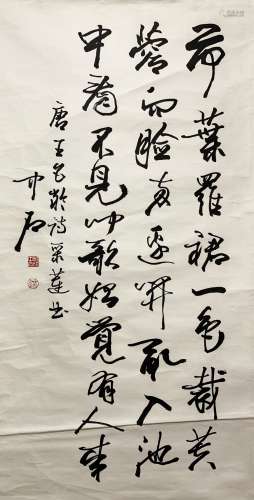 荷葉羅裙一色裁芙
蓉向臉兩邊開亂入池
中看不見聞歌始覺有人來
唐王昌齡詩采蓮曲
中石